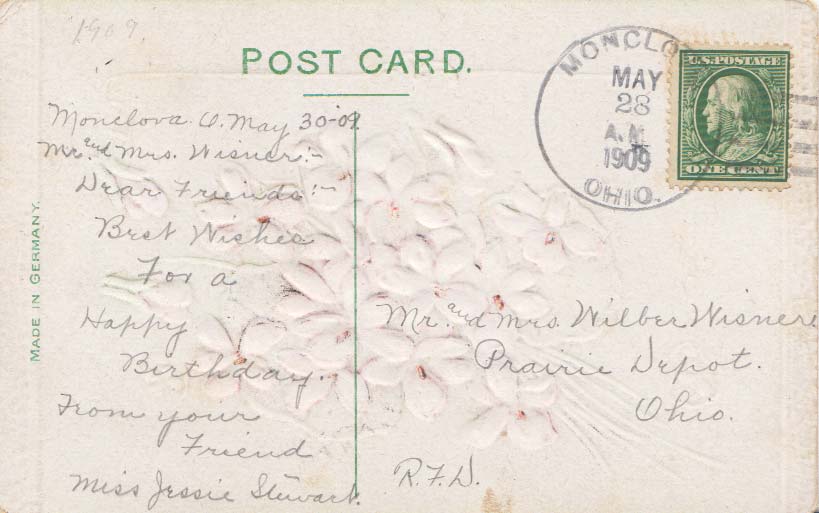 1909.
POST CARD.
MADE IN GERMANY.
Monclova. O. May 30-09.
Mr. and Mrs. Wisner:-
Dear Friends:-
Best Wishes
For a
Happy
Birthday.
From your
Friend
Miss Jessie Stewart.
MONCLO
MAY
28
A.M.
1909
OHIO.
U.S. POSTAGE
ONE CENT
Mr. and Mrs. Wilber Wisnere
Prairie Depot.
Ohio.
R.F.D.